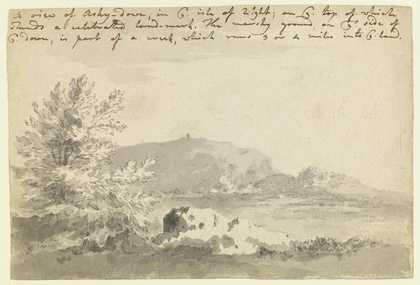 A view of Ashy-down, in ye. isle of Wight; on ye. top of which
stands a celebrated land-mark. The marshy ground on ye. side of
ye. down, is part of a creek, which runs 3 or 4 miles into ye. land.